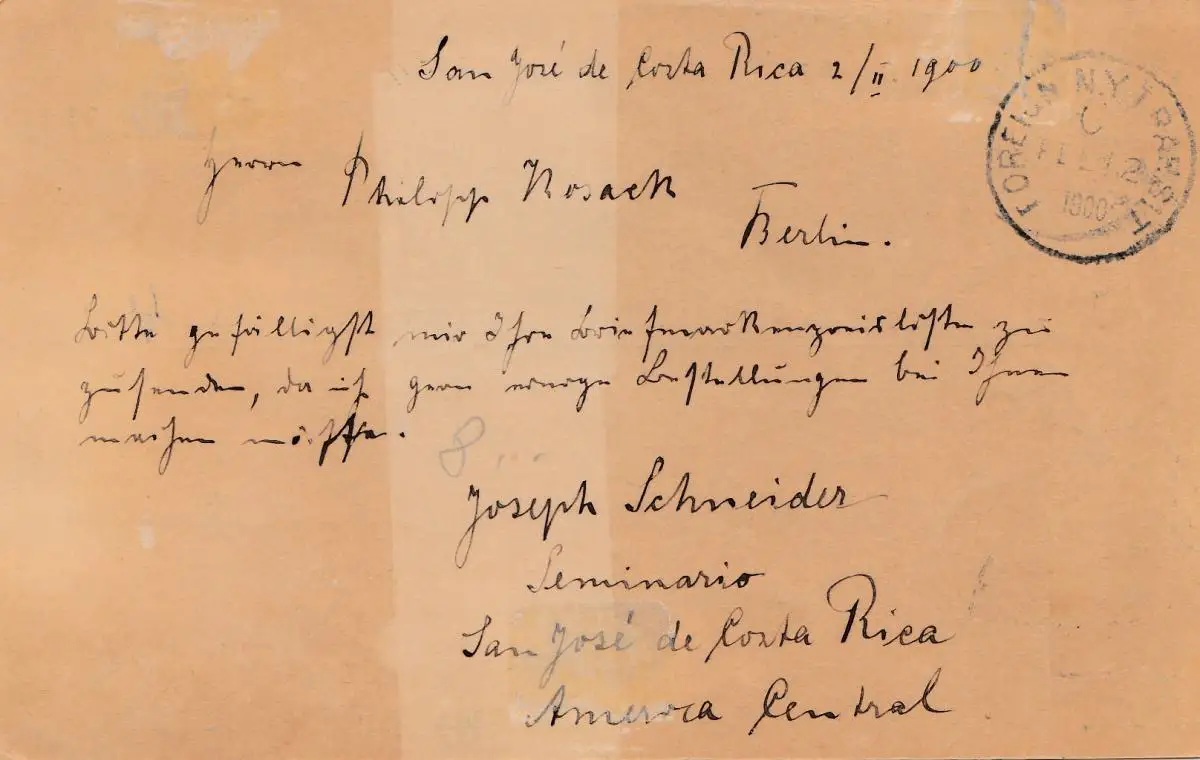 San José de Costa Rica 2/II 1900
FOREIGN N.Y. TRANSIT
1900
Herrn
Philipp Kosack
Berlin.
Bitte gefälligst mir Ihre Briefmarkenpreisliste zu
zusenden, da ich gern einige Bestellungen bei Ihnen
machen möchte.
8
Joseph Schneider
Seminario
San José de Costa Rica
America Central